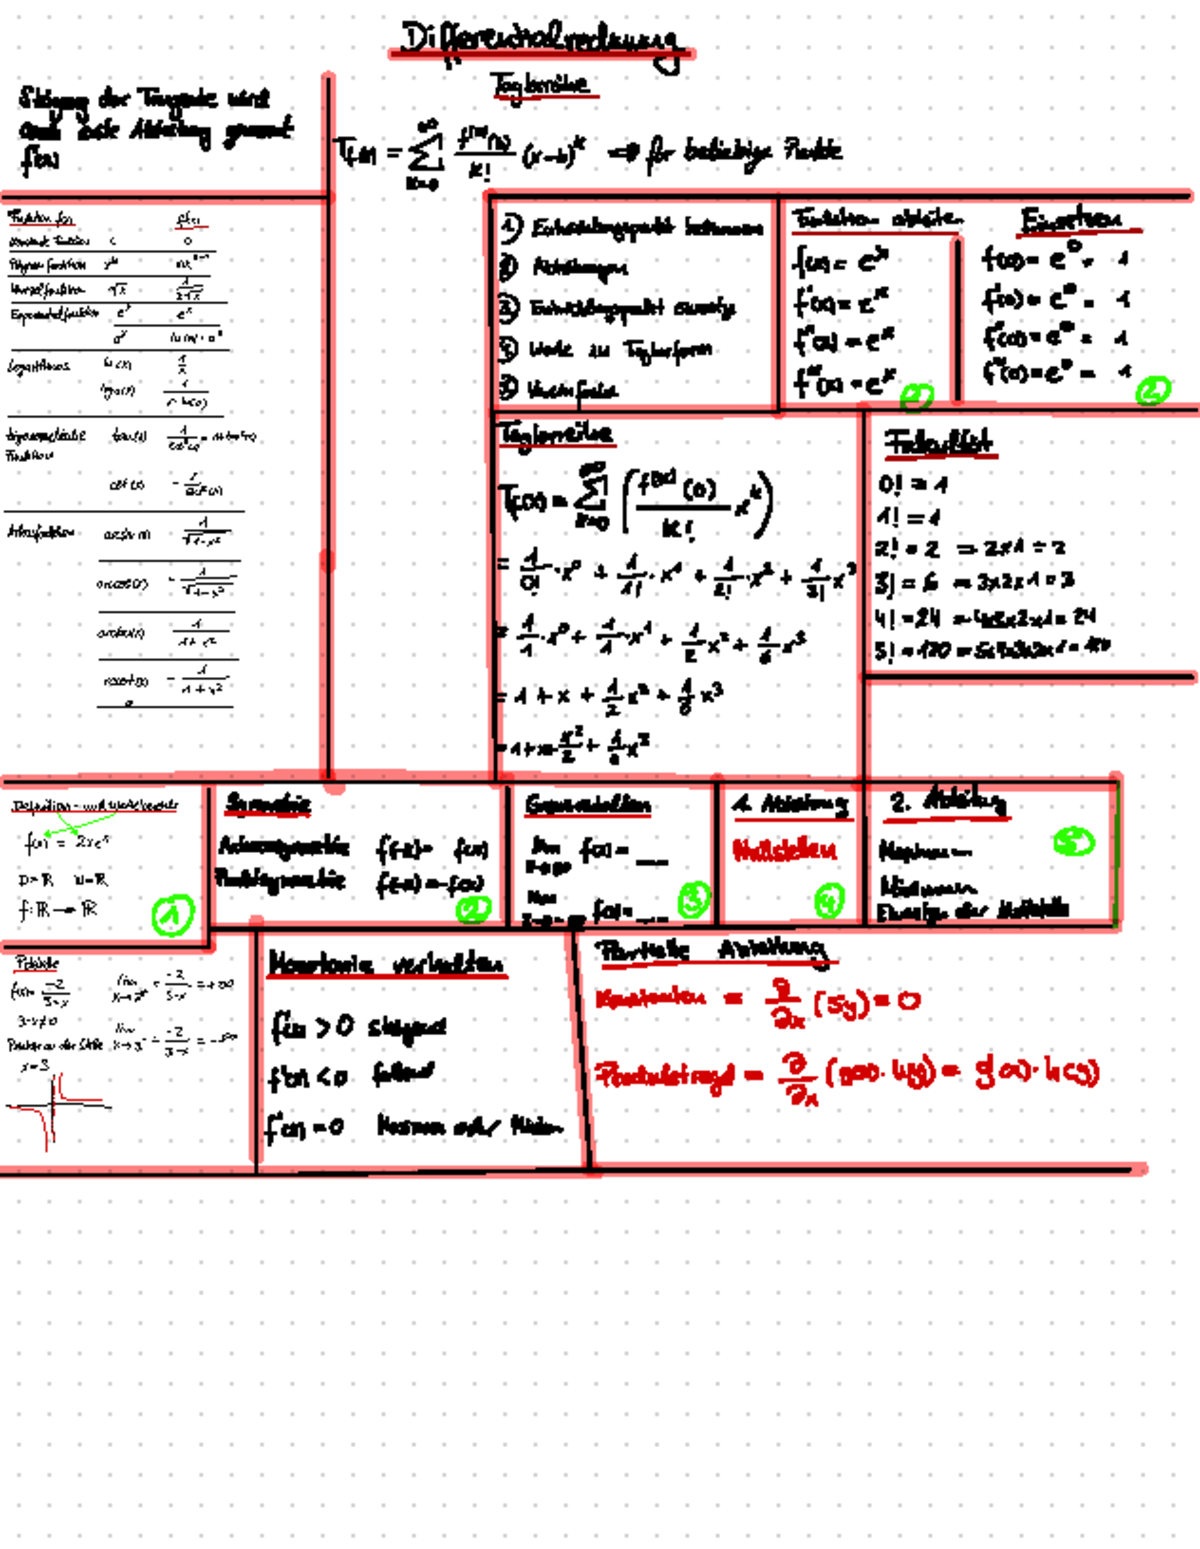 Differentialrechnung
Taylorreihe
Steigung der Tangente wird
auch erste Ableitung genannt
f'(x)
Tf(x) = ∑ k=0 ∞ f⁽ᵏ⁾( ) / k! (x- )ᵏ ⇒ für beliebige Punkte
Funktion f(x) f'(x)
Konstante Funktion c 0
Polynomfunktion xⁿ nxⁿ⁻¹
Wurzelfunktion √x 1/2√x
Exponentialfunktion eˣ eˣ
aˣ ln(a)·aˣ
Logarithmus ln(x) 1/x
Trigonometrische tan(x)
Funktion
cot(x)
Arkusfunktion arcsin(x) 1/√1-x²
arccos(x) -1/√1-x²
arctan(x) 1/1+x²
arccot(x) -1/1+x²
① Entwicklungspunkt bestimmen
② Ableitungen
③ Entwicklungspunkt
④ Werte in Taylorform
⑤ Vereinfachen
Funktion ableiten
f(x) = eˣ
f'(x) = eˣ
f''(x) = eˣ
f'''(x) = eˣ
①
Einsetzen
f(0) = e⁰ = 1
f'(0) = e⁰ = 1
f''(0) = e⁰ = 1
f'''(0) = e⁰ = 1
②
Taylorreihe
Tf(x) = ∑ k=0 ∞ (f⁽ᵏ⁾(0) / k! xᵏ)
= 1/0! · x⁰ + 1/1! · x¹ + 1/2! · x² + 1/3! x³
= 1/1 · x⁰ + 1/1 · x¹ + 1/2 x² + 1/6 x³
= 1 + x + 1/2 x² + 1/6 x³
= 1 + x + x²/2 + 1/6 x³
Fakultät
0! = 1
1! = 1
2! = 2 = 2x1 = 2
3! = 6 = 3x2x1 = 3
4! = 24 = 4x3x2x1 = 24
5! = 120 = 5x4x3x2x1 = 120
Definition- und Wertebereich
f(x) = 2xeˣ
D = ℝ W = ℝ
f: ℝ → ℝ
①
Symmetrie
Achsensymmetrie f(-x) = f(x)
Punktsymmetrie f(-x) = -f(x)
②
Grenzverhalten
lim f(x) = __
lim f(x) = __
③
1. Ableitung
Nullstellen
④
2. Ableitung
⑤
Maximum
Minimum
Einsetzen der Nullstelle
Polstelle
f(x) = -2/3-x
lim -2/3-x = +∞
3-x≠0
Polstelle an der Stelle lim x→3⁻ -2/3-x = -∞
x=3
Monotonie verhalten
f'(x) > 0 steigend
f'(x) < 0 fallend
f'(x) = 0 Maximum oder Minimum
Partielle Ableitung
Konstanten = ∂/∂x (5y) = 0
Produktregel = ∂/∂x (g(x)·h(y)) = g'(x)·h(y)